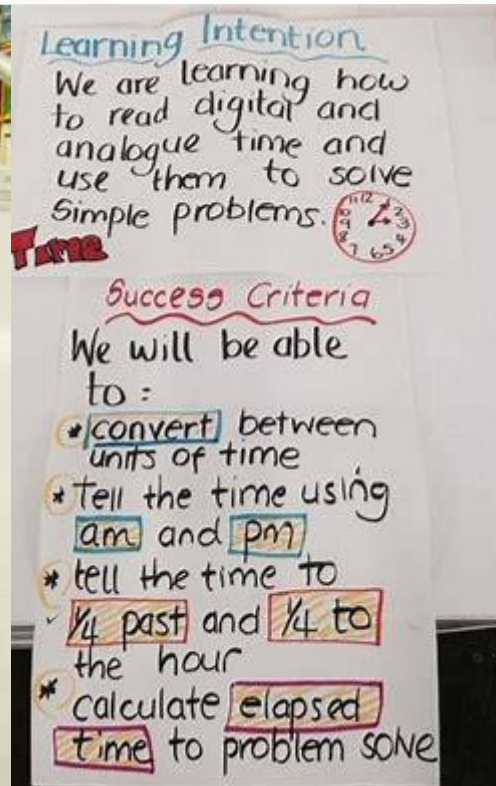 Learning Intention
We are learning how
to read digital and
analogue time and
use them to solve
simple problems.
Time
Success Criteria
We will be able
to:
* convert between
units of time
* Tell the time using
am and pm
* tell the time to
1/4 past and 1/4 to
the hour
* calculate elapsed
time to problem solve